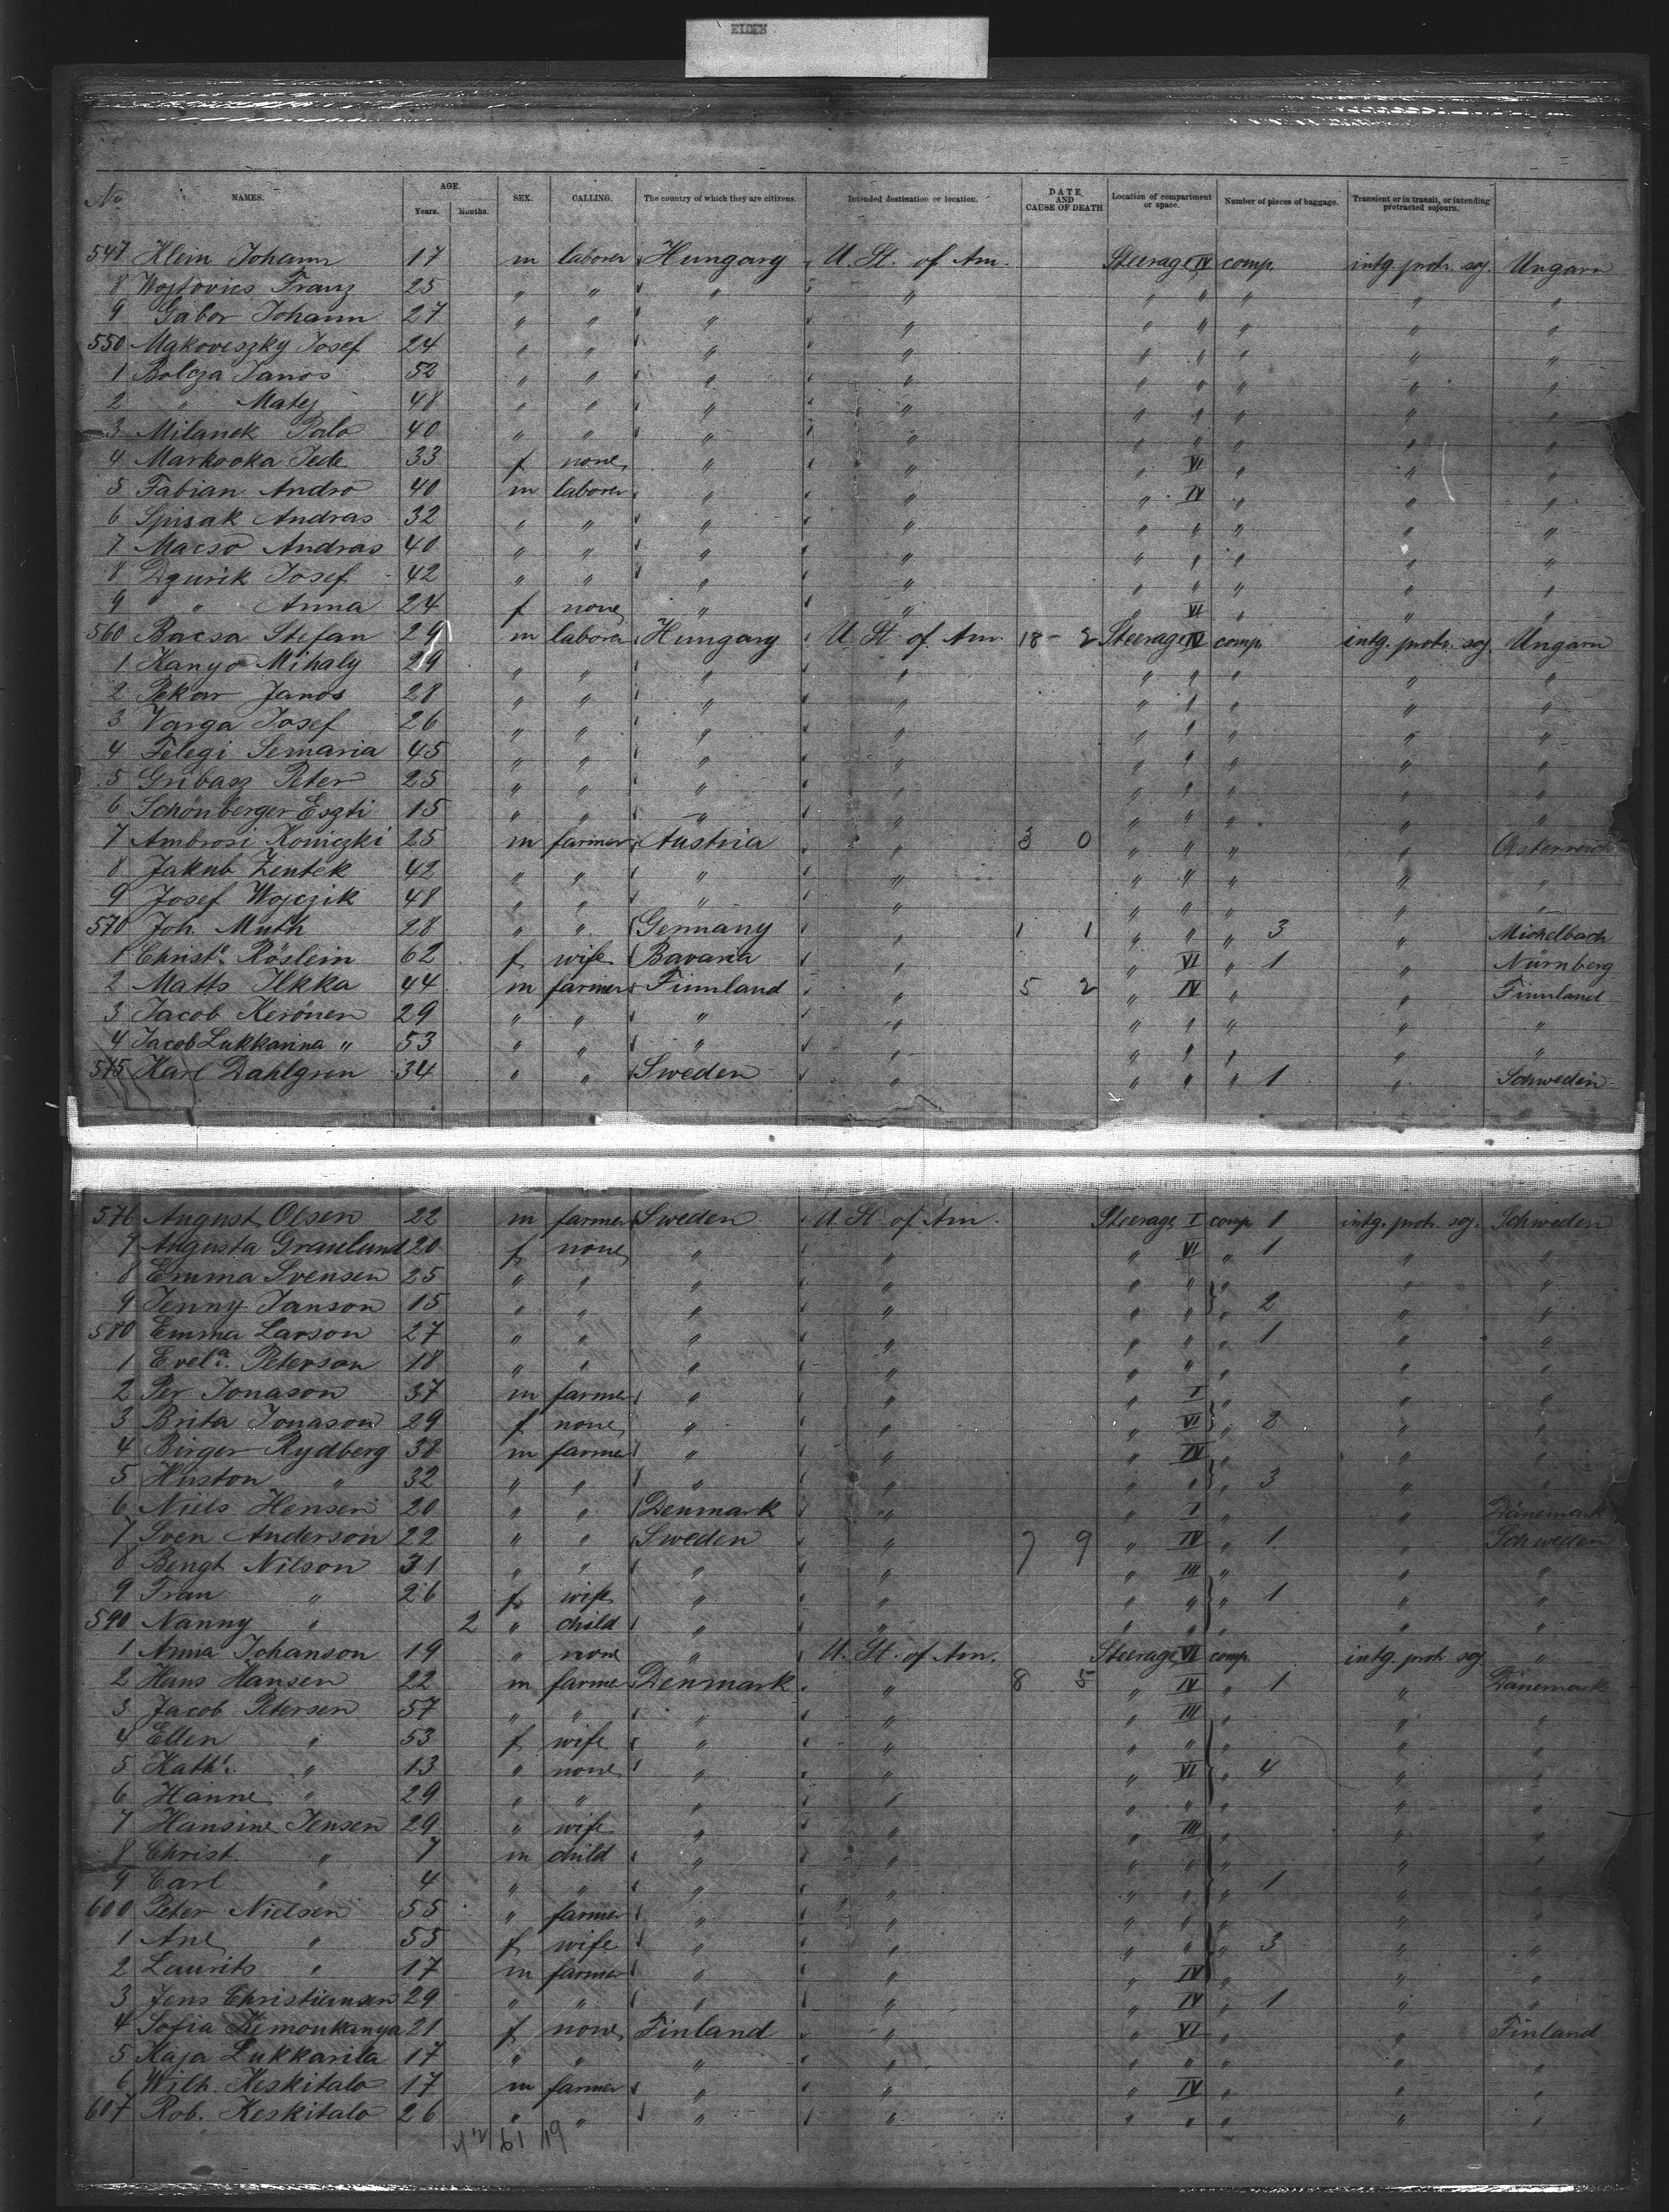 EIDEN
No. NAMES. AGE. Years. Months. SEX. CALLING. The country of which they are citizens. Intended destination or location. DATE AND CAUSE OF DEATH Location of compartment or space. Number of pieces of baggage. Transient or in transit, or intending protracted sojourn.
547 Klein Johann 17 m laborer Hungary U. St. of Am. Steerage IV comp. intg. protr. soj. Ungarn
8 Wojtovics Franz 25 " " " " " " " " "
9 Gabor Johann 27 " " " " " " " " "
550 Makoveszky Josef 24 " " " " " " " " "
1 Bolcza Janos 52 " " " " " " " " "
2 " Matej 48 " " " " " " " " "
3 Milanek Palo 40 " " " " " " " " "
4 Markooka Jede 33 f none " " " VI " " "
5 Fabian Andro 40 m laborer " " " IV " " "
6 Spisak Andras 32 " " " " " " " " "
7 Macso Andras 40 " " " " " " " " "
8 Dzurik Josef 42 " " " " " " " " "
9 " Anna 24 f none " " " VI " " "
560 Bacsa Stefan 29 m laborer Hungary U. St. of Am. 18 - 2 Steerage IV comp. intg. protr. soj. Ungarn
1 Kanyo Mihaly 29 " " " " " " " " "
2 Pekar Janos 28 " " " " " " " " "
3 Varga Josef 26 " " " " " " " " "
4 Felegi Semaria 45 " " " " " " " " "
5 Gribasz Peter 25 " " " " " " " " "
6 Schönberger Eszti 15 " " " " " " " " "
7 Ambrosi Koniczki 25 m farmer Austria " 3 0 " " " " Oesterreich
8 Jakub Zentek 42 " " " " " " " " "
9 Josef Wojczik 48 " " " " " " " " "
570 Joh. Muth 28 " " Germany " 1 1 " " " 3 " Michelbach
1 Christ. Röslein 62 f wife Bavaria " " VI " 1 " Nürnberg
2 Matts Ilkka 44 m farmer Finnland " 5 2 " IV " " Finnland
3 Jacob Kerönen 29 " " " " " " " " "
4 Jacob Lukkarina " 53 " " " " " " " " "
575 Karl Dahlgren 34 " " Sweden " " " " 1 " Schweden
576 August Olsen 22 m farmer Sweden U. St. of Am. Steerage I comp. 1 intg. protr. soj. Schweden
7 Augusta Graulund 20 f none " " " VI " 1 " "
8 Emma Svensen 25 " " " " " " " " "
9 Jenny Janson 15 " " " " " " " 2 " "
580 Emma Larson 27 " " " " " " " 1 " "
1 Evel.a Peterson 18 " " " " " " " " "
2 Per Jonason 37 m farmer " " " I " " "
3 Brita Jonason 29 f none " " " VI " 2 " "
4 Birger Rydberg 38 m farmer " " " IV " " "
5 Huston " 32 " " " " " " " 3 " "
6 Niels Hensen 20 " " Denmark " " I " " Dänemark
7 Sven Anderson 22 " " Sweden " 7 9 " IV " 1 " Schweden
8 Bengt Nilson 31 " " " " " III " " "
9 Frau " 26 f wife " " " " " 1 " "
590 Nanny " 2 " child " " " " " " "
1 Anna Johanson 19 " none " U. St. of Am. Steerage VI comp. intg. protr. soj. "
2 Hans Hansen 22 m farmer Denmark " 8 5 " IV " 1 " Dänemark
3 Jacob Petersen 57 " " " " " III " " "
4 Ellen " 53 f wife " " " " " " "
5 Kath. " 13 " none " " " VI " 4 " "
6 Hanne " 29 " " " " " " " " "
7 Hansine Jensen 29 " wife " " " III " " "
8 Christ. " 7 m child " " " " " " "
9 Carl " 4 " " " " " " " 1 " "
600 Peter Nielsen 55 " farmer " " " " " " "
1 Ane " 55 f wife " " " " " 3 " "
2 Laurits " 17 m farmer " " " IV " " "
3 Jens Christiansen 29 " " " " " IV " 1 " "
4 Sofia Kemonkanya 21 f none Finland " " VI " " Finland
5 Kaja Lukkarila 17 " " " " " " " " "
6 Wilh. Keskitalo 17 m farmer " " " IV " " "
607 Rob. Keskitalo 26 " " " " " " " " "
61 19